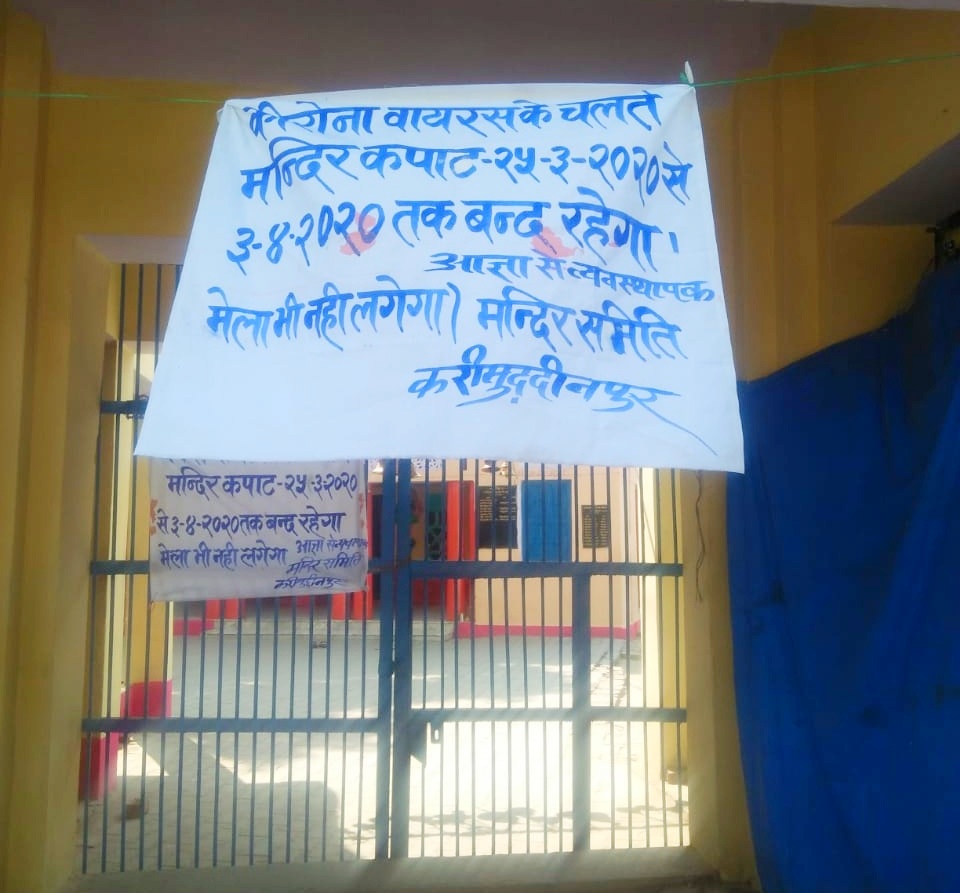 कोरोना वायरस के चलते
मन्दिर कपाट-२५-३-२०२० से
३-४-२०२० तक बन्द रहेगा।
आज्ञा से व्यवस्थापक
मेला भी नही लगेगा) मन्दिर समिति
करीमुद्दीनपुर
मन्दिर कपाट-२५-३-२०२०
से ३-४-२०२० तक बन्द रहेगा
मेला भी नही लगेगा आज्ञा से
मन्दिर समिति
करीमुद्दीनपुर